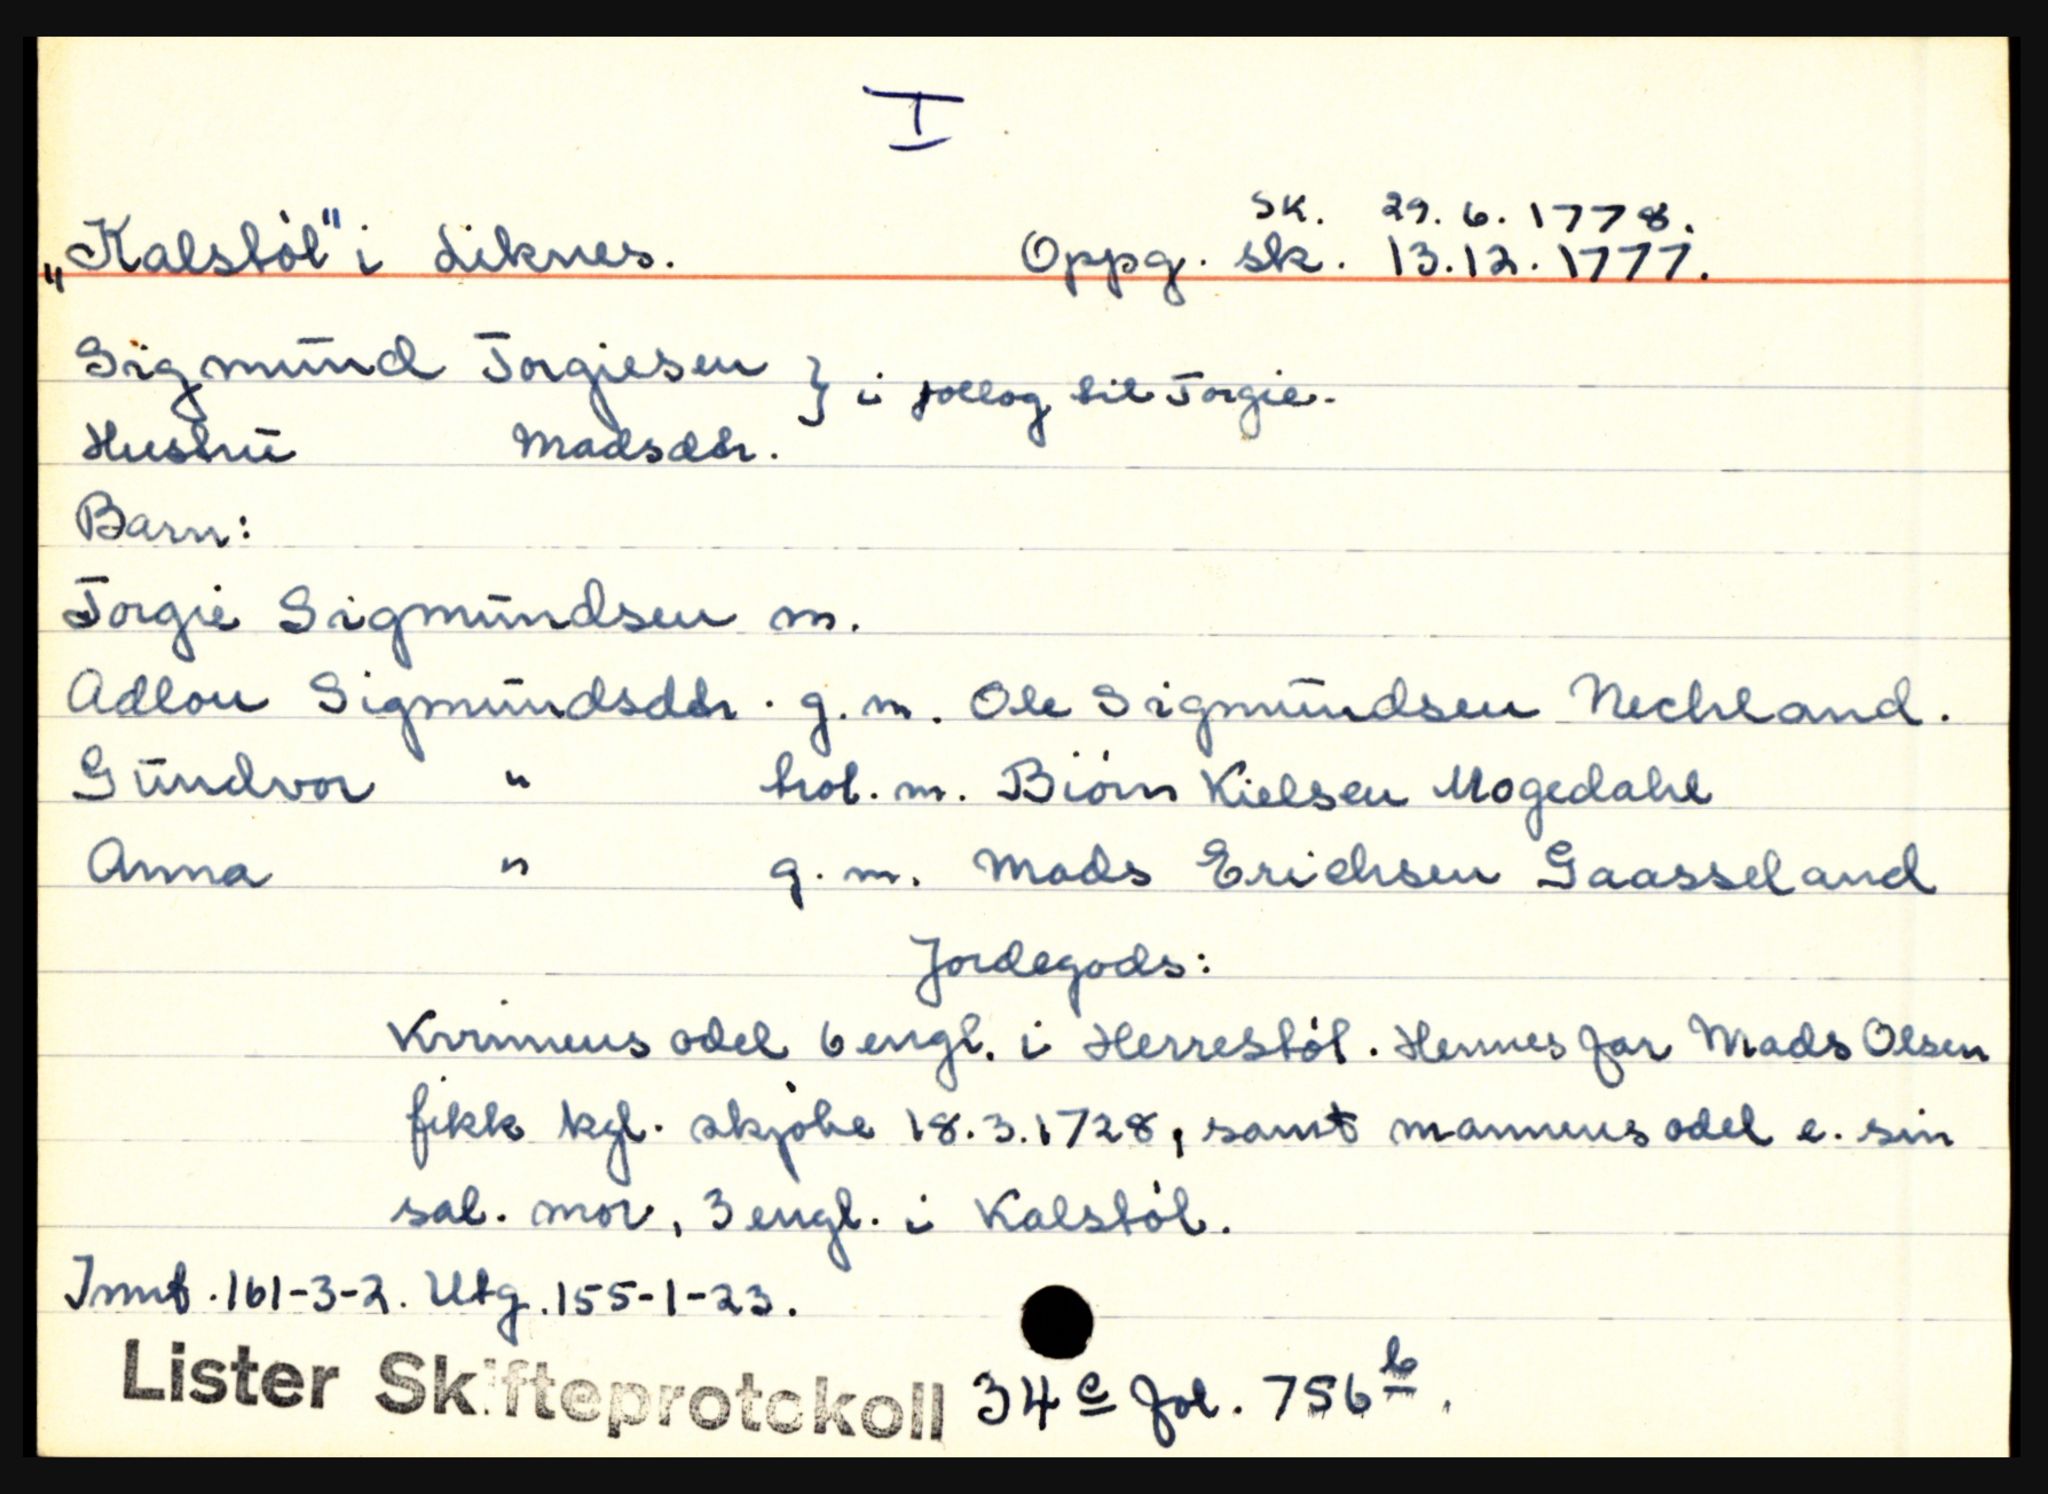 I
Sk. 29.6.1778.
"Kalstøl" i Liknes. Oppg. sk. 13.12.1777.
Sigmund Torgiesen } i follog til Torgie.
Hustru Madsdtr.
Barn:
Torgie Sigmundsen m.
Adlou Sigmundsdtr. g.m. Ole Sigmundsen Nechland.
Gundvor " trol. m. Biørn Kielsen Mogedahl
Anna " g.m. Mads Erichsen Gaasseland
Jordegods:
Kvinnens odel 6 engl. i Herrestøl. Hennes far Mads Olsen
fikk kgl. skjøte 18.3.1728, samt mannens odel e. sin
sal. mor, 3 engl. i Kalstøl.
Innt. 161-3-2. Utg. 155-1-23.
Lister Skifteprotokoll 34c fol. 756b.